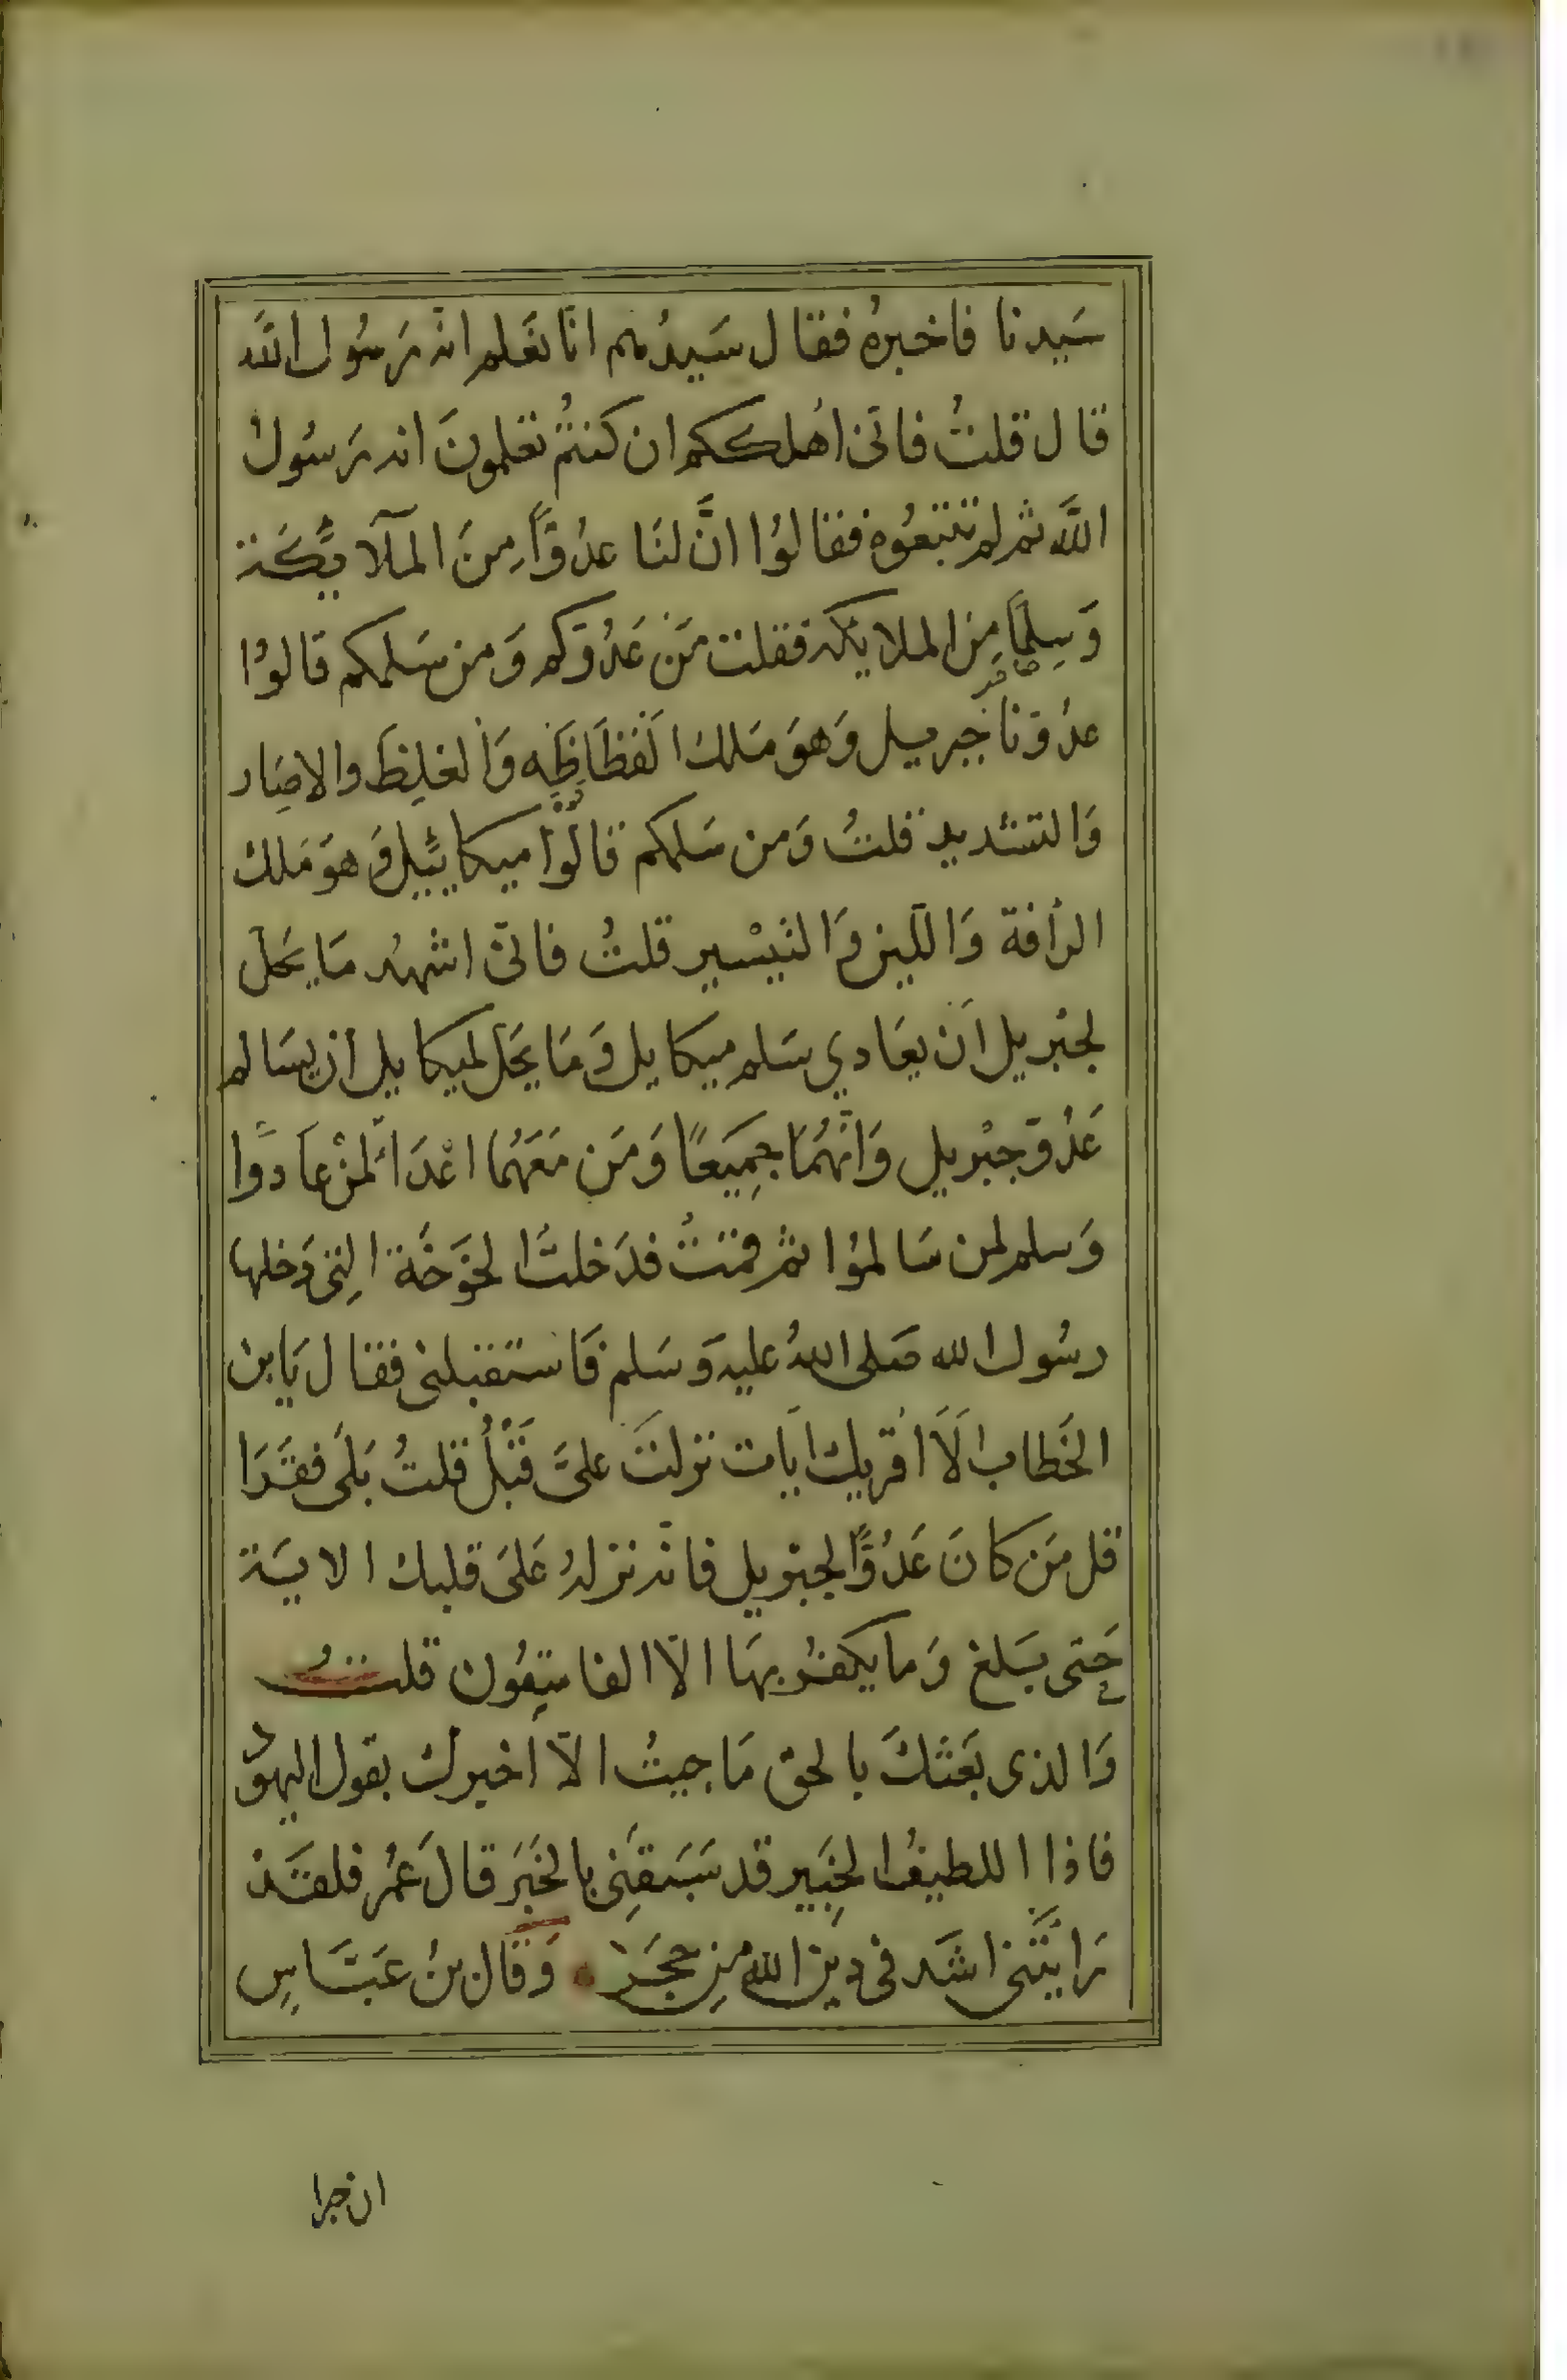 سَيدنا فاخبرهُ فقال سَيدُهم انّا نعَلم انّه رَسُول اللَّه
قال قلتُ فانّى اهُلككم ان كنتمُ تعلمونَ انه رَسُولُ
اللَّه ثم لم تتبعُوه فقالوُا انَّ لنَا عدُوّاً مِنَ الملآئِكَة
وَسِلماً مِن الملايكه فقلت مَن عَدُوّكم وَمن سَلمكم قالوُا
عدُوّنا جبريل وَهوَ مَلك الفَظَاظَه وَالغليظَ والاصَار
وَالتشديد قلتُ وَمن سَلمكم قالوُا ميكائيل وَهوَ مَلك
الرأفة وَاللّين وَالتيسْير قلتُ فانّى اشهدُ مَا يَحَل
لجبْريل اَن يعَادي سَلم ميكايل وَمَا يَحَل لميكايل أن يسَالم
عَدُوّ جبْريل وَانّهُمَا جمِيَعًا وَمَن مَعَهُما اعْدَآ لمَنْ عَادَوا
وَسلم لمن سَالموُا ثم قمتُ فدَخلتُ الخوَخَة التِى دَخلها
رسُول الله صَلى اللهُ عليه وَسَلم فاستقبلنى فقال يَابن
الخَطاب اَلَا اُقريك اَيات نزلتَ علىَّ قَبْلُ قلتُ بَلَى فقَرَا
قل مَن كانَ عَدُوًّا لجبْريل فانّه نزلهُ عَلىَ قلبك الايَة
حَتى بَلغ وَما يكفُر بهَا الّا الفاسِقُون قلتُ
وَالذى بعَثكَ بالحق مَا جيتُ الّا اُخبرك بقول اليهوُد
فاذا اللطيفُ الخبِير قد سَبَقنِى بالخَبَر قالَ عمُر فلقَد
رَايَتنى اشَد فى دِين الله مِن حجَر وَقال بنُ عَبَّاسٍ
ان حبرا